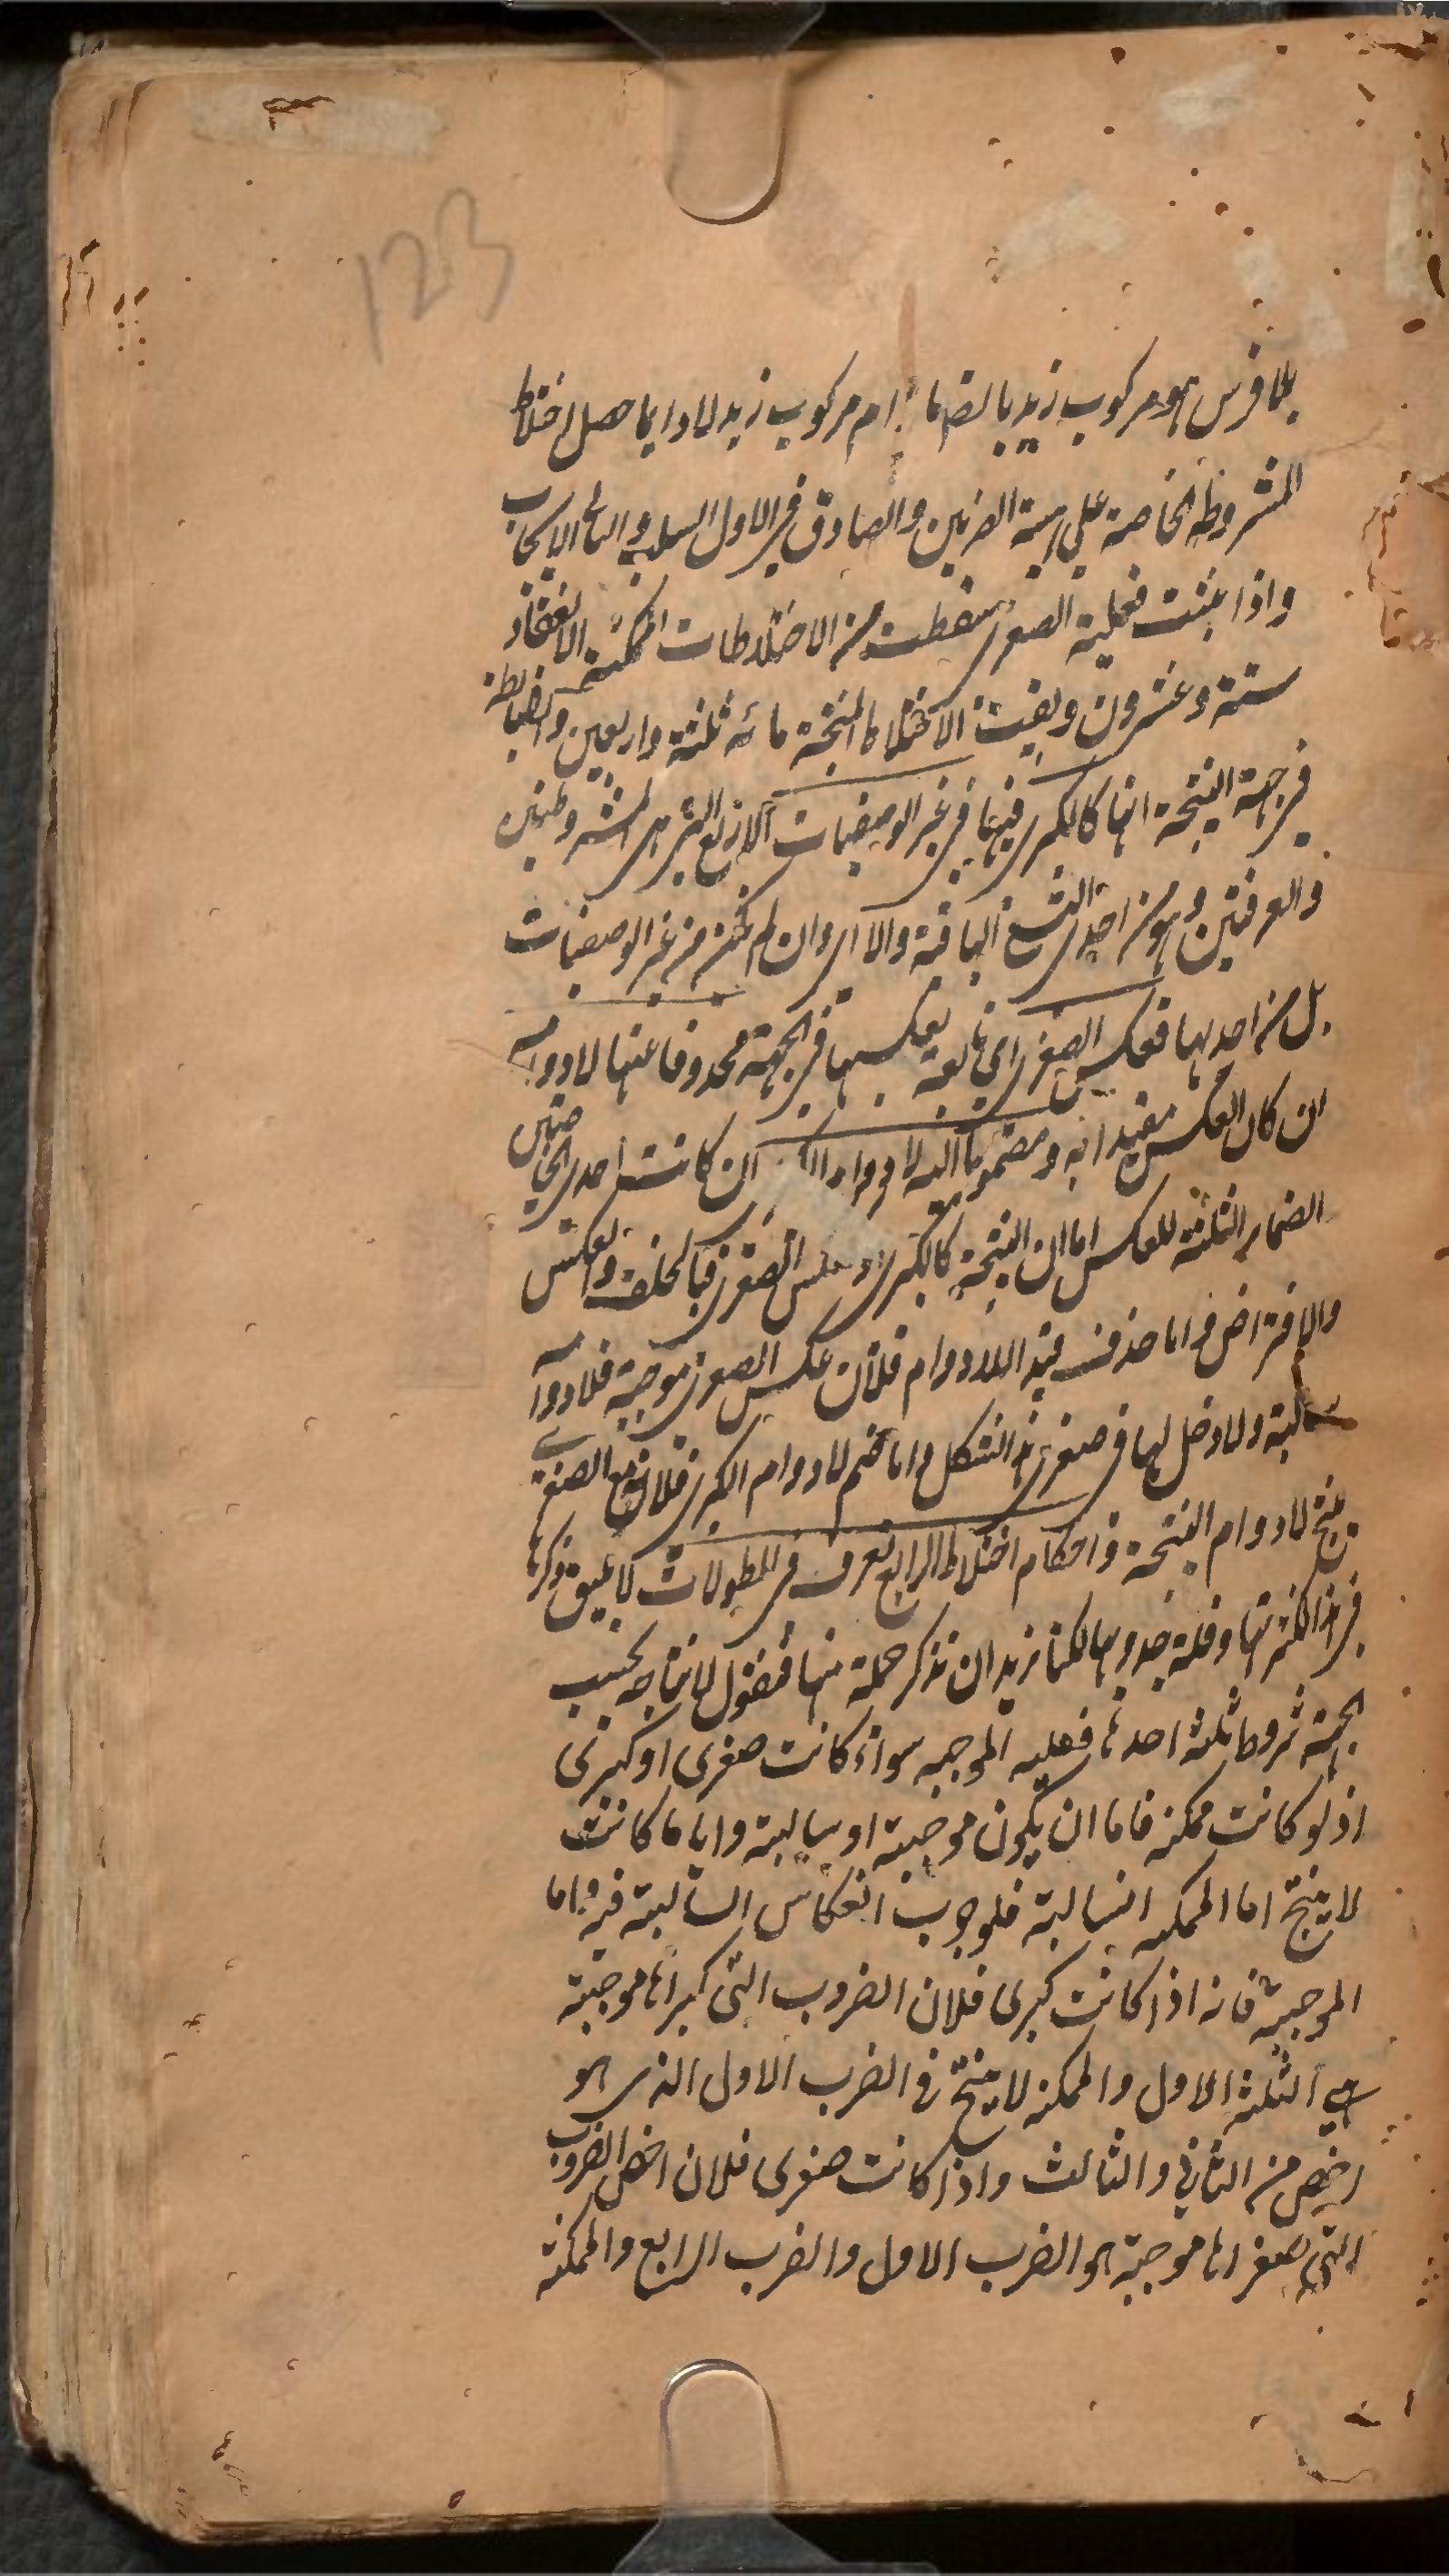 123
بلما فرس هو مركوب زيد بالضر ما دام مركوب زيد لا دايما حصل اختلاط
المشروطة الخاصة على هيئة الضربين والصادق فى الاول السلب والثانى الايجاب
واذا بنيت فعلية الصغرى سقطت من الاختلاطات الممكنة الانعقاد
ستة وعشرون وبقيت الاختلاطات المنتجة مائه ثلثة واربعين والضابطة
فى جهة النتيجة انها كالكبرى فيها فى غير الوصفيات الاربع التى هى المشروطتين
والعرفتين وهو من احدى التسع الباقية والا اى وان لم تكن من غير الوصفيات
بل من احديها فعكس الصغرى اى تابعة بعكسها فى الجهة محذوفا عنها لا دوامه
ان كان العكس مقيدا به ومضموما اليه لا دوام الكبرى ان كانت احدى الخاصتين
الضماير الثلثة للعكس اما ان النتيجة كالكبرى او عكس الصغرى فبالخلف والعكس
والافتراض واما حذف قيد اللادوام فلان عكس الصغرى موجبة فلادوامه
سالبة ولا دخل لها فى صغرى هذا الشكل واما ضم لا دوام الكبرى فلان مع الصغرى
ينتج لا دوام النتيجة واحكام اختلاط الرابع تعرف فى المطولات لا يليق ذكرها
فى هذا لكثرتها وقلة جدويها لكنا نريد ان نذكر جملة منها فنقول لانتاجه بحسب
الجهة شروط ثلثة احدها فعلية الموجبه سواء كانت صغرى او كبرى
اذ لو كانت ممكنه فاما ان يكون موجبة او سالبة وايا ما كانت
لا ينتج اما الممكنه السالبة فلوجوب انعكاس السالبة فيه واما
الموجبة فانه اذا كانت كبرى فلان الضروب التى كبراها موجبة
هى الثلثة الاول والممكنه لا ينتج فى الضرب الاول الذى هو
اخص من الثانى والثالث واذا كانت صغرى فلان اخص الضروب
التى صغراها موجبة هو الضرب الاول والضرب الرابع والممكنة